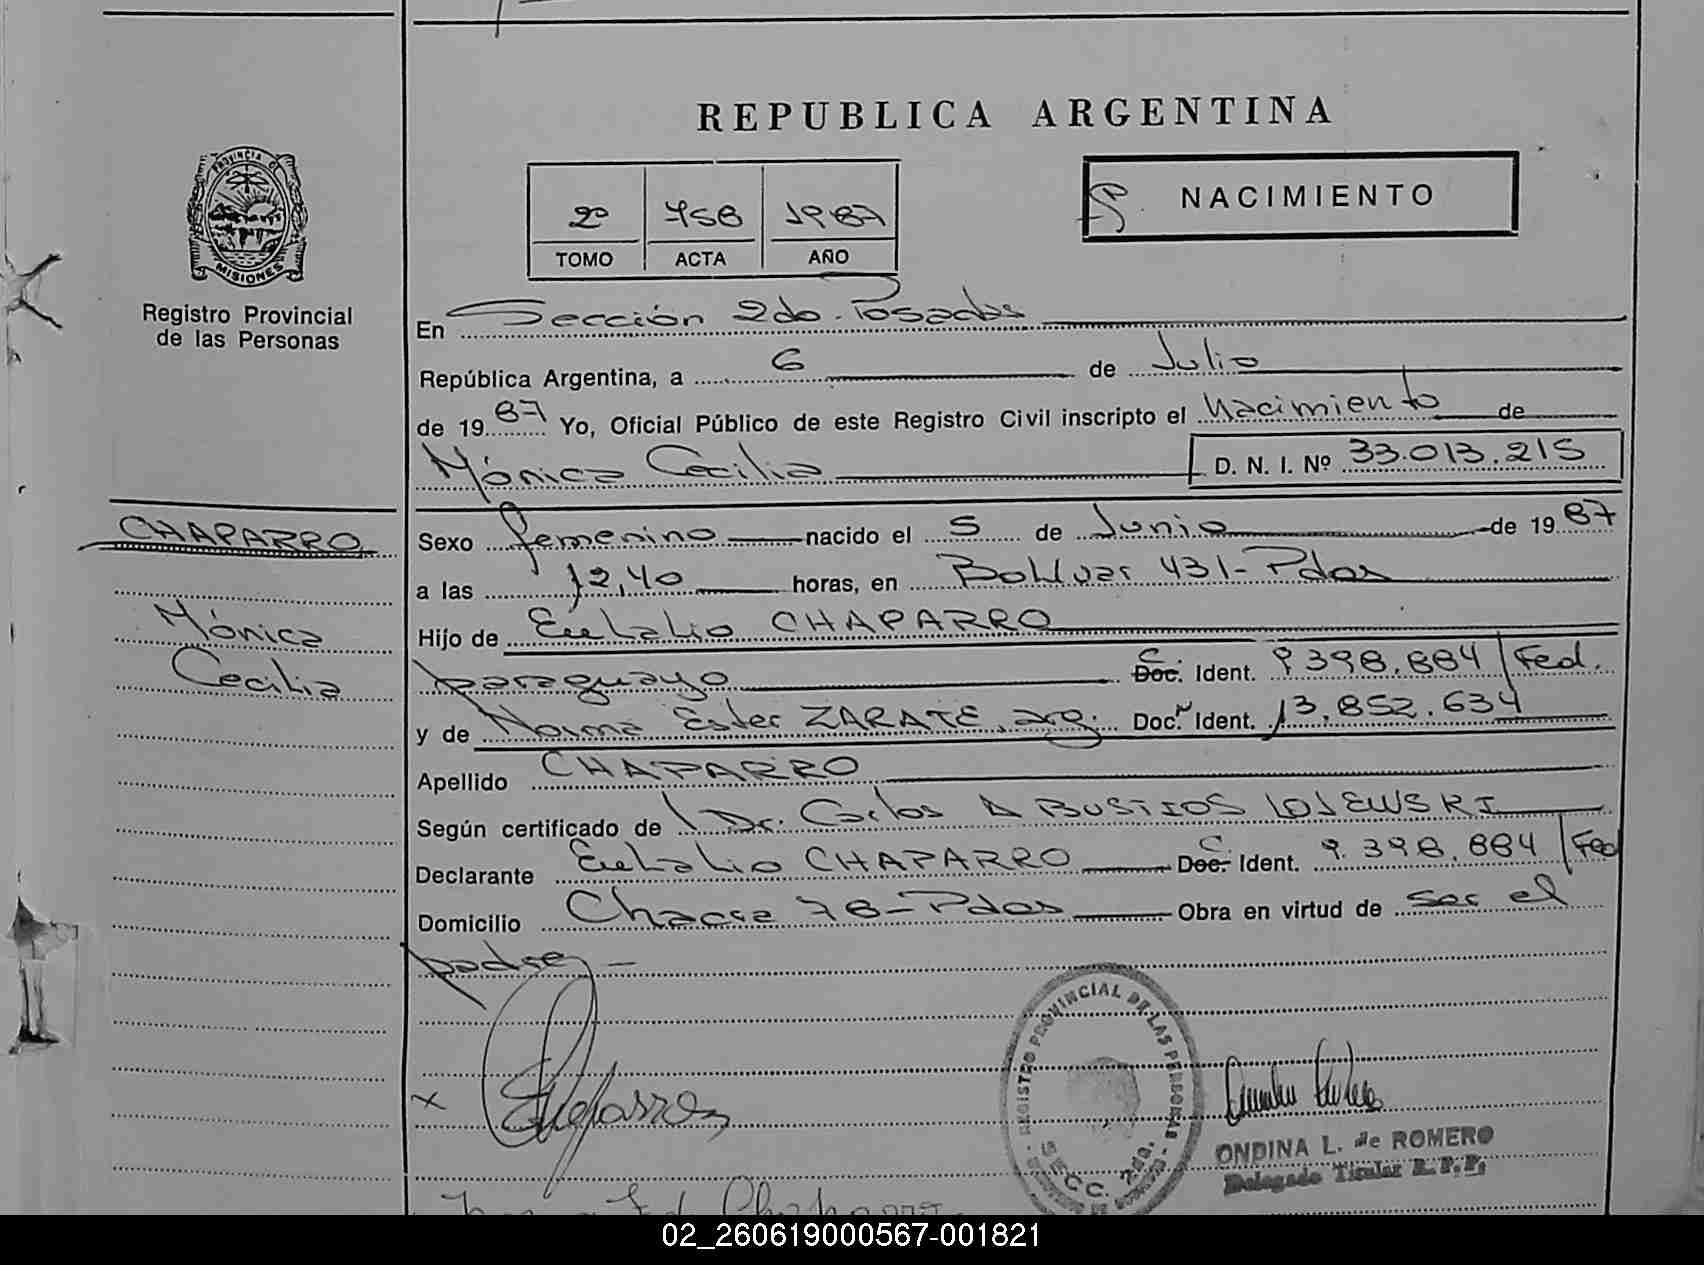 REPUBLICA ARGENTINA
PROVINCIA DE
MISIONES
Registro Provincial
de las Personas
2º 758 1987
TOMO ACTA AÑO
NACIMIENTO
En Sección 2do. Posadas
República Argentina, a 6 de Julio
de 1987 Yo, Oficial Público de este Registro Civil inscripto el Nacimiento de
Mónica Cecilia D. N. I. Nº 33.013.215
CHAPARRO
Mónica
Cecilia
Sexo femenino nacido el 5 de Junio de 1987
a las 12,40 horas, en Bolívar 431-Pdas
Hijo de Eulalio CHAPARRO
paraguayo Doc. C. Ident. 9.398.884/Fed.
y de Norma Ester ZARATE, arg. Doc. N Ident. 13.852.634
Apellido CHAPARRO
Según certificado de Dr. Carlos A BUSTIOS LOJEWSKI
Declarante Eulalio CHAPARRO Doc. C Ident. 9.398.884/Fed
Domicilio Chacra 78-Pdas Obra en virtud de ser el
padre-
x
REGISTRO PROVINCIAL DE LAS PERSONAS
SECC. 2da.
ONDINA L. de ROMERO
Delegado Titular R.P.P.
02_260619000567-001821